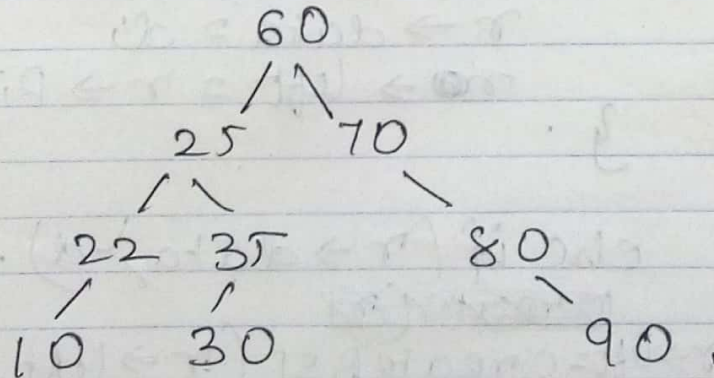 60
25 70
22 35 80
10 30 90